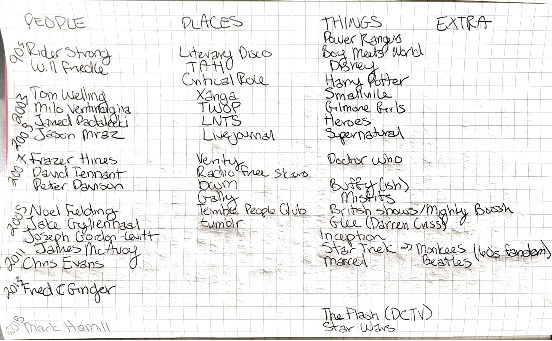 PEOPLE PLACES THINGS EXTRA
Power Rangers
90s Rider Strong Literary Disco Boy Meets World
Will Friedle TAH Disney
Critical Role Harry Potter
Tom Welling Xanga Smallville
2003 Milo Ventimiglia TWOP Gilmore Girls
Jared Padalecki LNTS Heroes
2005 Jason Mraz Livejournal Supernatural
X Frazer Hines Verity Doctor Who
2007 David Tennant Radio Free Skaro
Peter Davison DWM Buffy (ish)
Gally Misfits
2005 Noel Fielding Terrible People Club British shows/Mighty Boosh
Jake Gyllenhaal tumblr Glee (Darren Criss)
Joseph Gordon-Levitt Inception
2011 James McAvoy Star Trek → Monkees (60s fandom)
Chris Evans Marvel Beatles
2013 Fred & Ginger
The Flash (DCTV)
Mark Hamill Star Wars